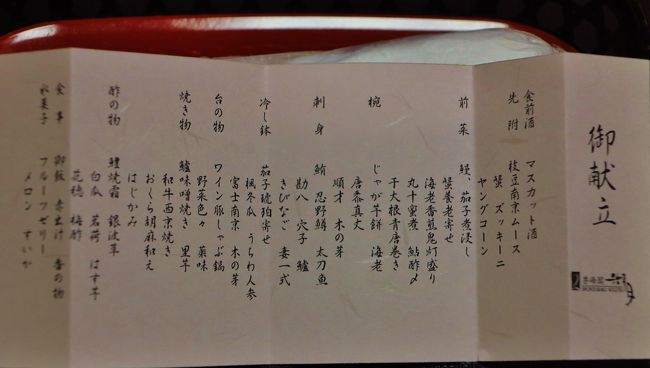 御献立
食前酒 マスカット酒
先附 枝豆南京ムース
蟹 ズッキーニ
ヤングコーン
前菜 鰻、茄子煮浸し
蟹養老寄せ
海老香煎鬼灯盛り
丸十蜜煮 鮎酢〆
干大根青唐巻き
椀 じゃが芋餅 海老
唐黍真丈
順才 木の芽
刺身 鮪 忍野鱒 太刀魚
勘八 穴子 鱸
きびなご 妻一式
冷し鉢 茄子琥珀寄せ
楓冬瓜 うちわ人参
富士南京 木の芽
台の物 ワイン豚しゃぶ鍋
野菜色々 薬味
焼き物 鱸味噌焼き 里芋
和牛西京焼き
おくら胡麻和え
はじかみ
酢の物 鱧焼霜 銀波草
白瓜 若荷 はす芋
花穂 梅酢
食事 御飯 赤出汁 香の物
水菓子 フルーツゼリー
メロン すいか